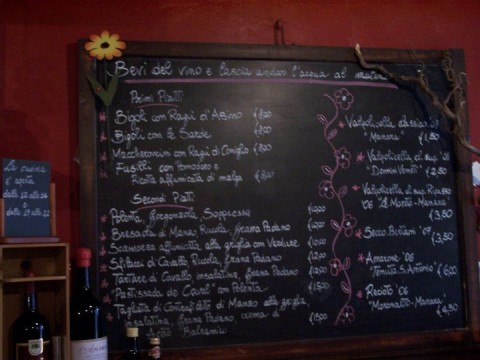 Bevi del vino e lascia andar l'acqua al mulino
Primi Piatti
Bigoli con Ragù d'Asino €8,00
Bigoli con le Sarde €8,00
Maccheroncini con Ragù di Coniglio €8,00
Fusilli con Pomodoro e
Ricotta affumicata di malga €8,00
Secondi Piatti
Polenta, Gorgonzola, Soppressa
Bresaola di Manzo, Rucola, Grana Padano
Scamorza affumicata alla griglia con Verdure
Sfilacci di Cavallo Rucola, Grana Padano
Tartare di Cavallo insalatina, Grana Padano
Pastissada de Caval' con Polenta
Tagliata di Controfiletto di Manzo alla griglia
insalatina, grana Padano, crema di
Balsamico
Valpolicella classico
"Manara"
Valpolicella sup.
"Domini Veneti"
Valpolicella sup. Ripasso
'06 "Le Morete-Manara"
€3,50
Secco Bertani '09
€3,50
Amarone '06
"Tenuta S. Antonio" €6,00
Recioto '06
"Moronalto-Manara"
La cucina
è aperta
dalle 12 alle
dalle 19 alle 22